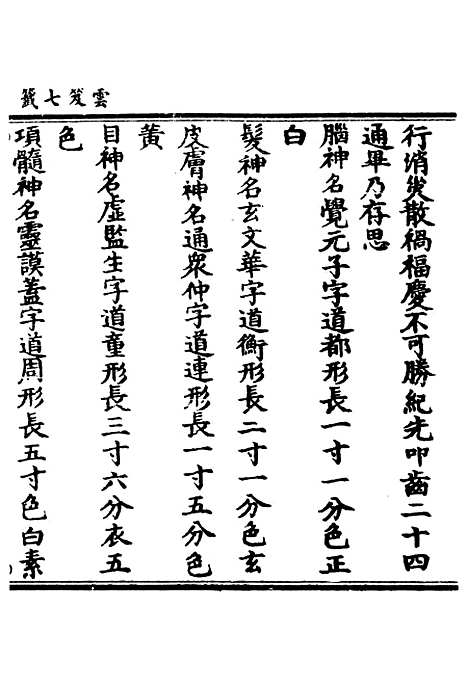 雲笈七籤
行消災散禍福慶不可勝紀先叩齒二十四
通畢乃存思
腦神名覺元子字道都形長一寸一分色正
白
髮神名玄文華字道衡形長二寸一分色玄
皮膚神名通衆仲字道連形長一寸五分色
黃
目神名虛監生字道童形長三寸六分衣五
色
項髓神名靈謨蓋字道周形長五寸色白素